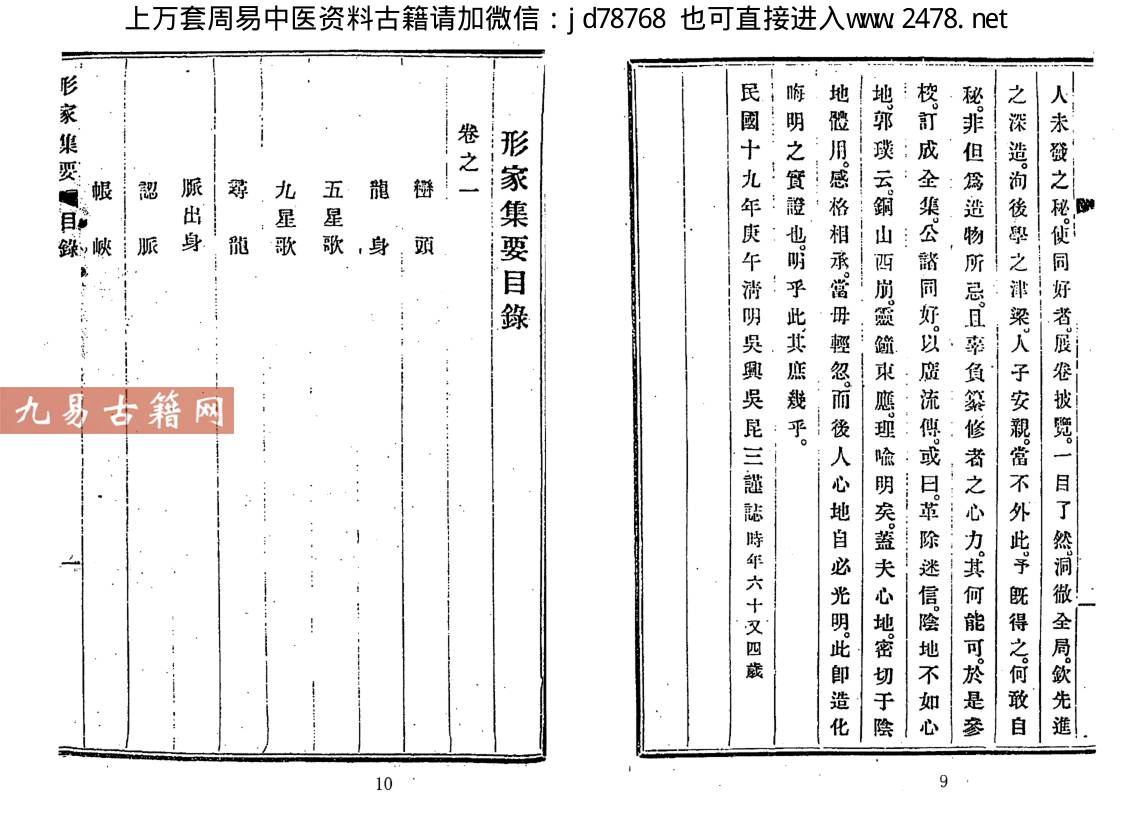 上万套周易中医资料古籍请加微信：jd78768 也可直接进入www.2478.net
人未發之秘。使同好者。展卷披覽。一目了然。洞徹全局。欽先進
之深造。洵後學之津梁。人子安親。當不外此。予既得之。何敢自
秘。非但爲造物所忌。且辜負纂修者之心力。其何能可。於是參
校。訂成全集。公諸同好。以廣流傳。或曰。革除迷信。陰地不如心
地。郭璞云。銅山西崩。靈鐘東應。理喩明矣。蓋夫心地。密切于陰
地體用。感格相承。當毋輕忽。而後人心地自必光明。此卽造化
晦明之實證也。明乎此。其庶幾乎。
民國十九年庚午淸明吳興吳昆三謹誌時年六十又四歲
9
形家集要目錄
卷之一
巒頭
龍身
五星歌
九星歌
尋龍
脈出身
認脈
帳峽
形家集要 目錄
一
10
九易古籍网